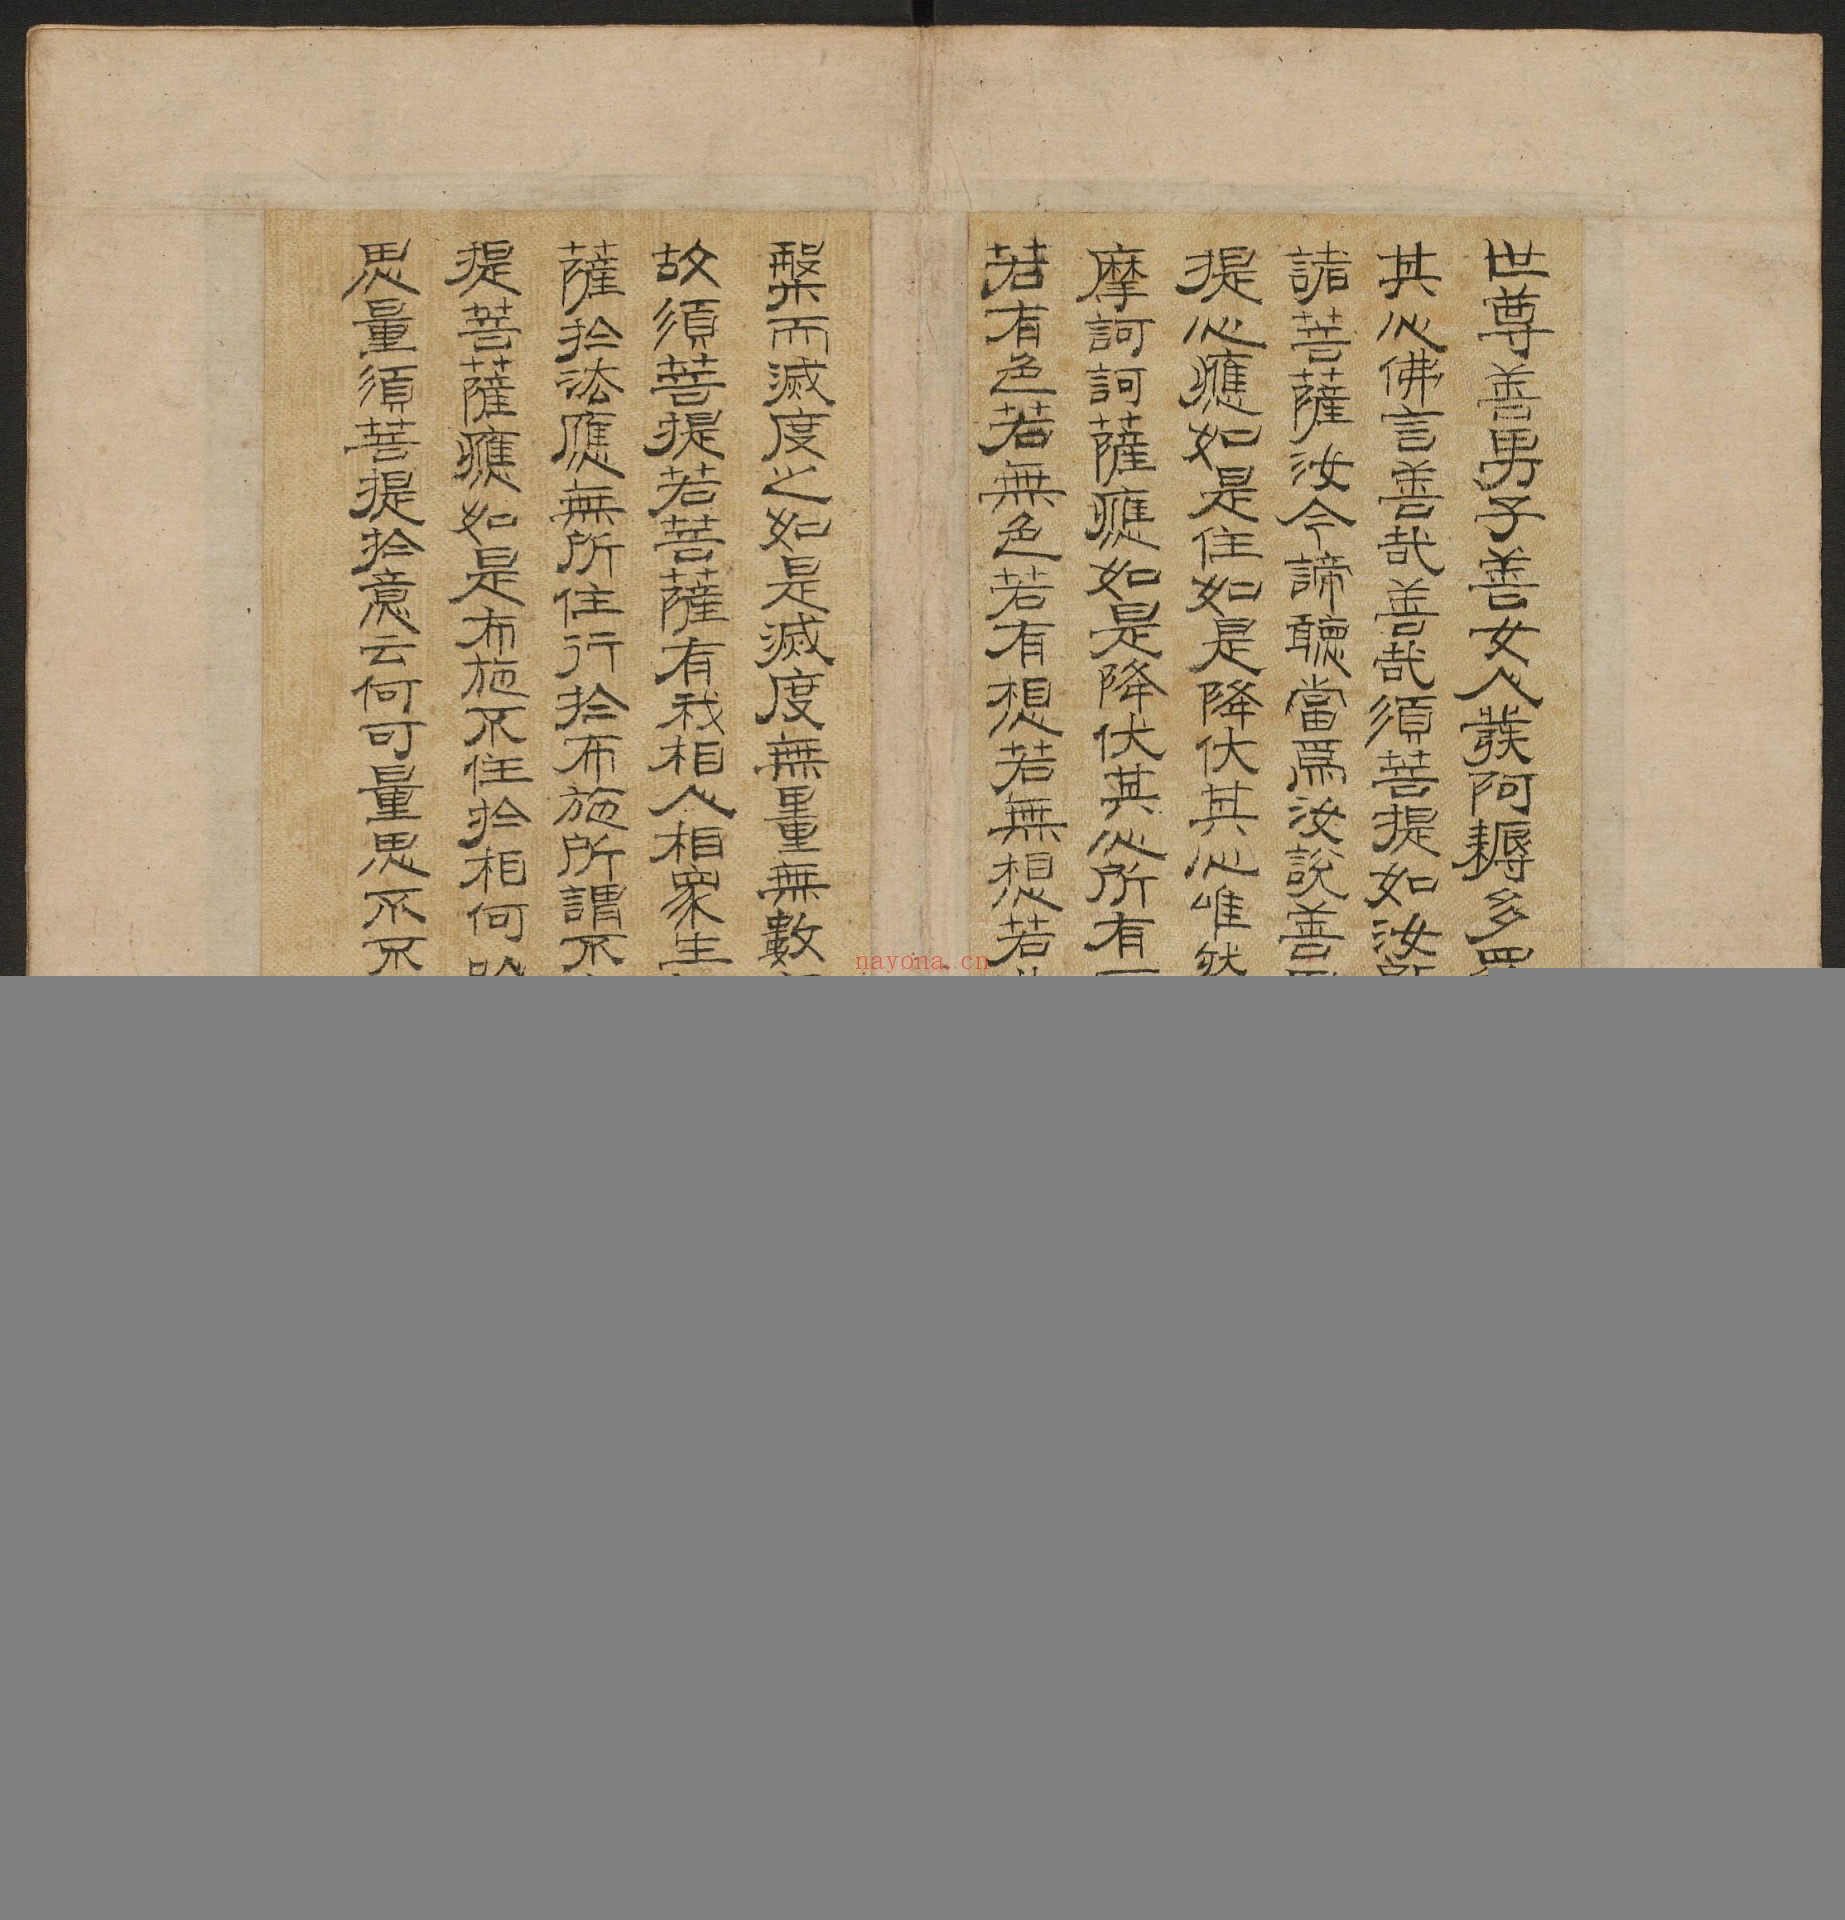 世尊善男子善女人發阿耨多
其心佛言善哉善哉須菩提如汝
諸菩薩汝今諦聽當爲汝說善
提心應如是住如是降伏其心唯然
摩訶訶薩應如是降伏其心所有
若有色若無色若有想若無想若
槃而滅度之如是滅度無量無數
故須菩提若菩薩有我相人相眾生
薩於法應無所住行於布施所謂不
提菩薩應如是布施不住於相何
思量須菩提於意云何可量思不不
nayona.cn